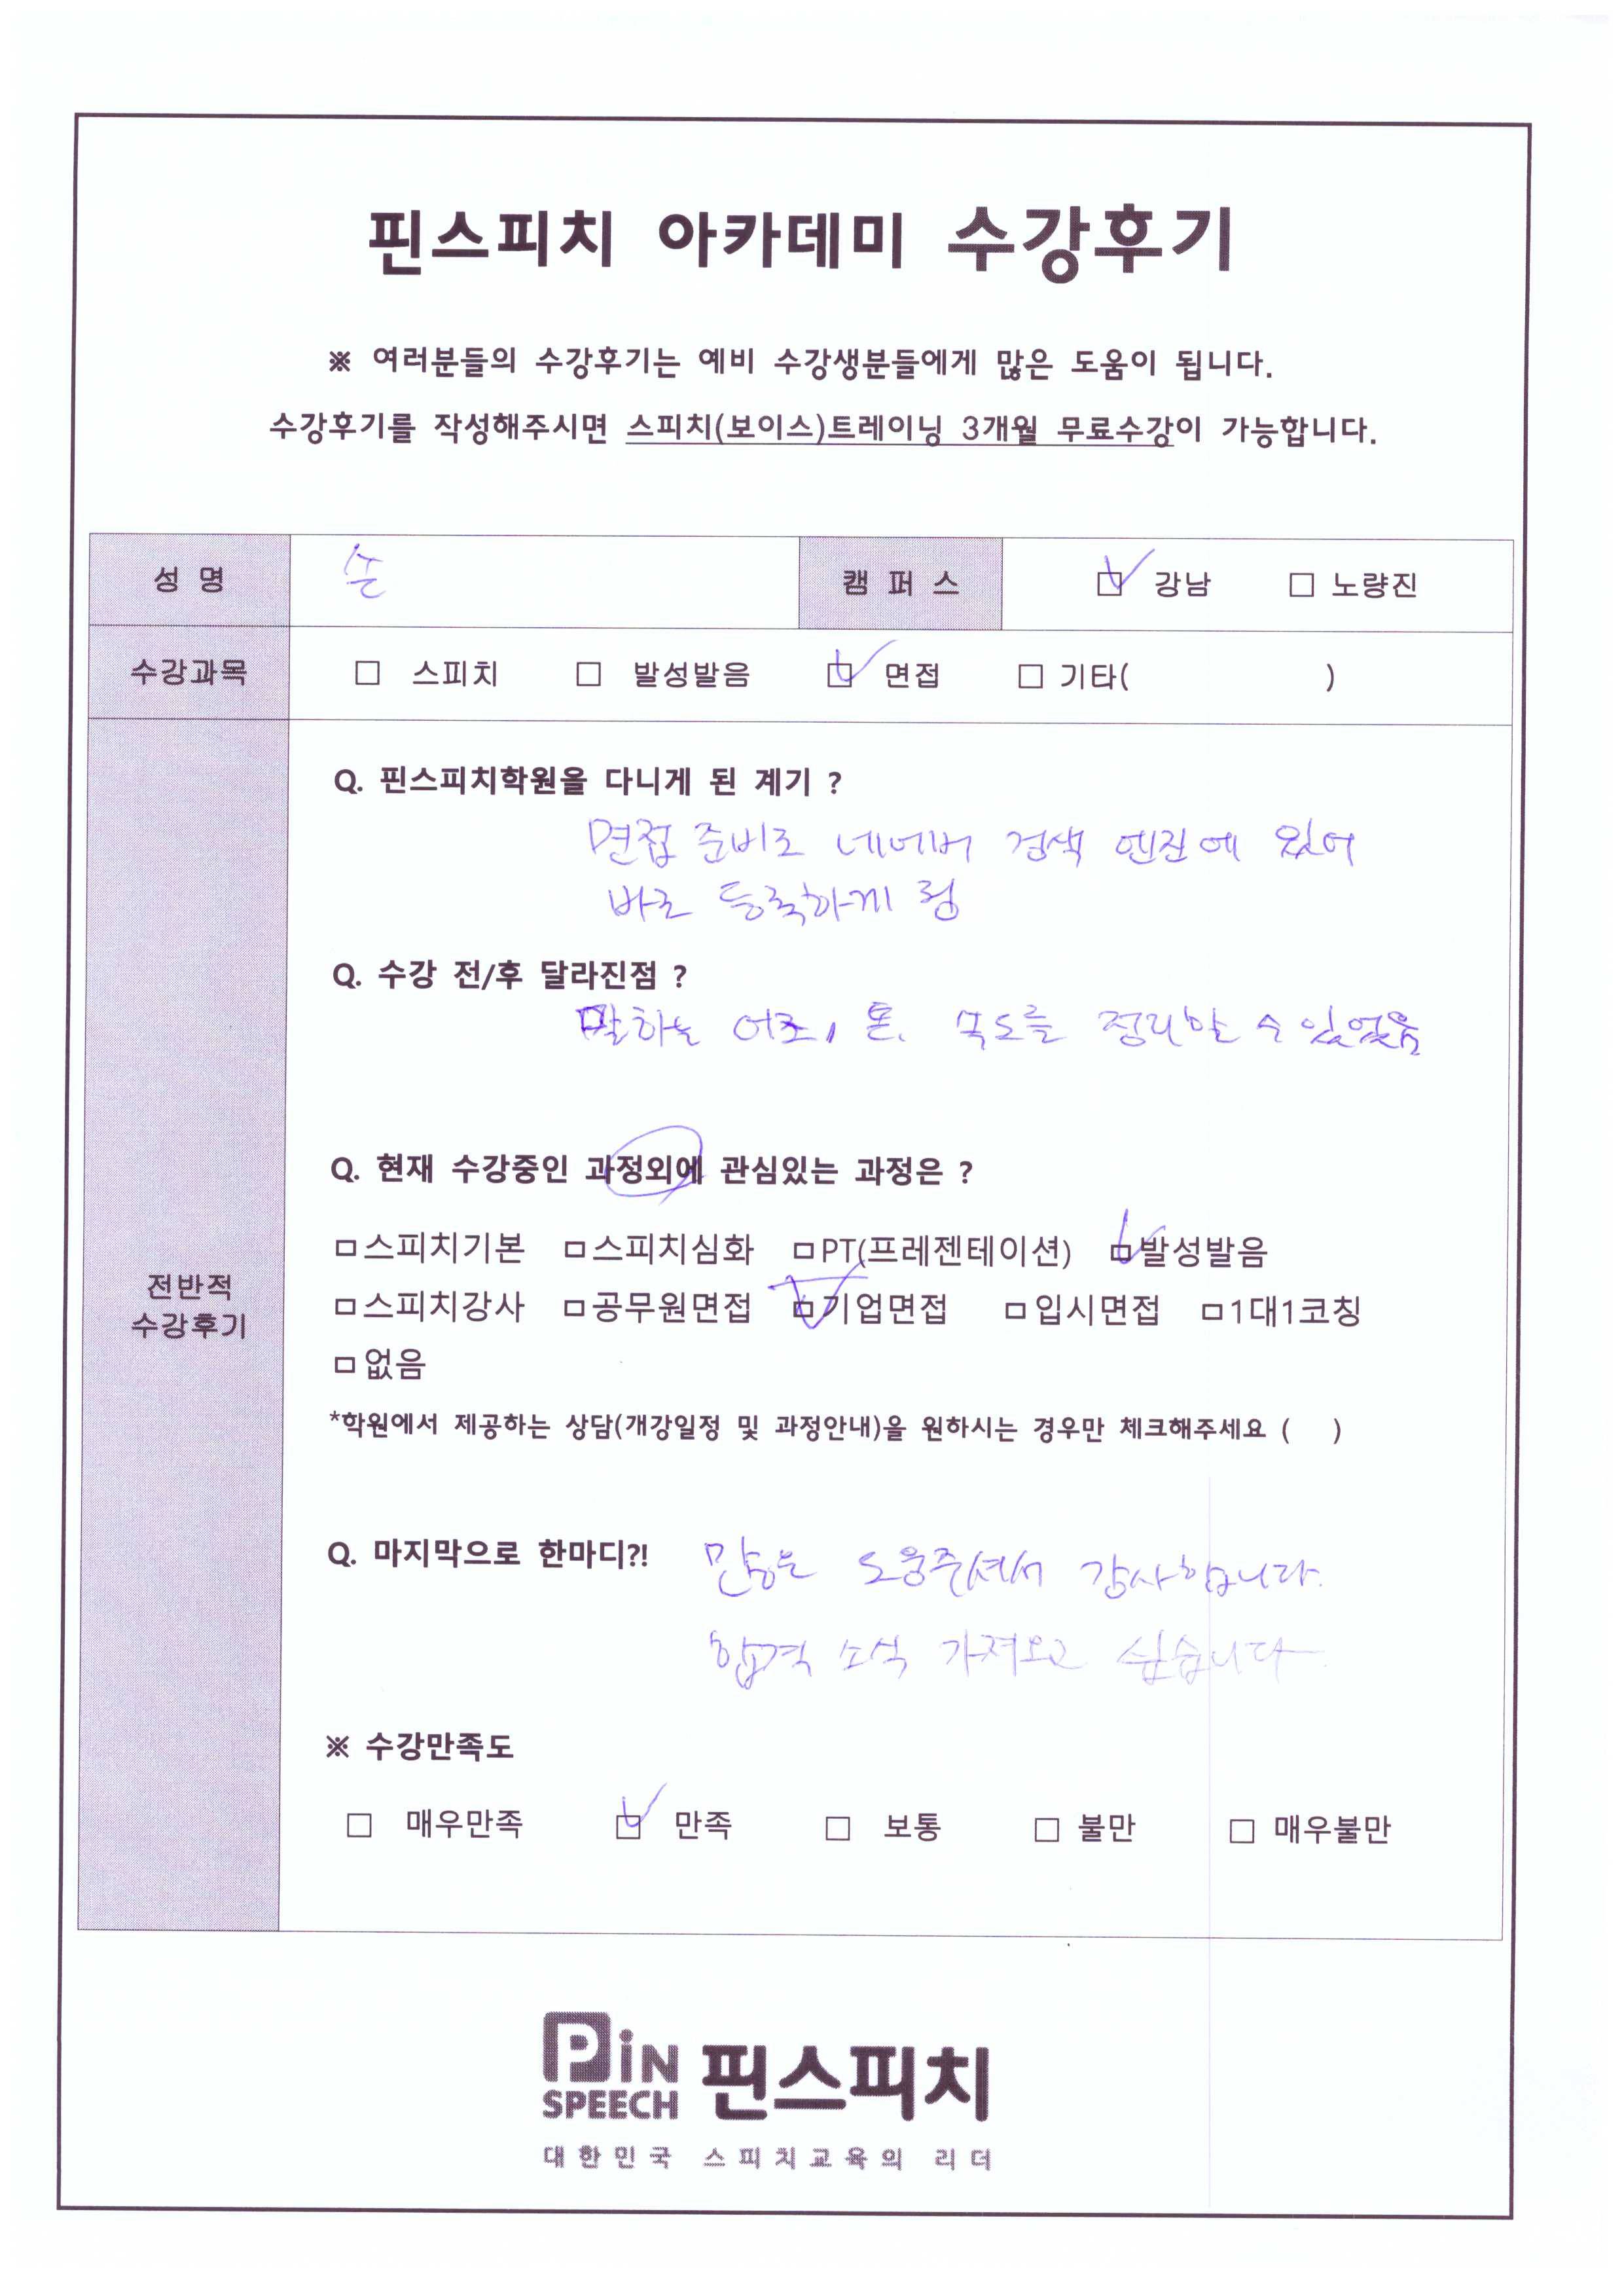 핀스피치 아카데미 수강후기
※ 여러분들의 수강후기는 예비 수강생분들에게 많은 도움이 됩니다.
수강후기를 작성해주시면 스피치(보이스)트레이닝 3개월 무료수강이 가능합니다.
성 명 손 캠 퍼 스 ☑ 강남 □ 노량진
수강과목 □ 스피치 □ 발성발음 ☑ 면접 □ 기타( )
Q. 핀스피치학원을 다니게 된 계기 ?
면접 준비로 네이버 검색 엔진에 있어
바로 등록하게 됨
Q. 수강 전/후 달라진점 ?
말하는 어조, 톤, 속도를 정리할 수 있었음
Q. 현재 수강중인 과정외에 관심있는 과정은 ?
□스피치기본 □스피치심화 □PT(프레젠테이션) ☑발성발음
전반적
수강후기
□스피치강사 □공무원면접 ☑기업면접 □입시면접 □1대1코칭
□없음
*학원에서 제공하는 상담(개강일정 및 과정안내)을 원하시는 경우만 체크해주세요 ( )
Q. 마지막으로 한마디?! 많은 도움주셔서 감사합니다.
합격 소식 가져오고 싶습니다.
※ 수강만족도
□ 매우만족 ☑ 만족 □ 보통 □ 불만 □ 매우불만
PiN
SPEECH 핀스피치
대한민국 스피치교육의 리더